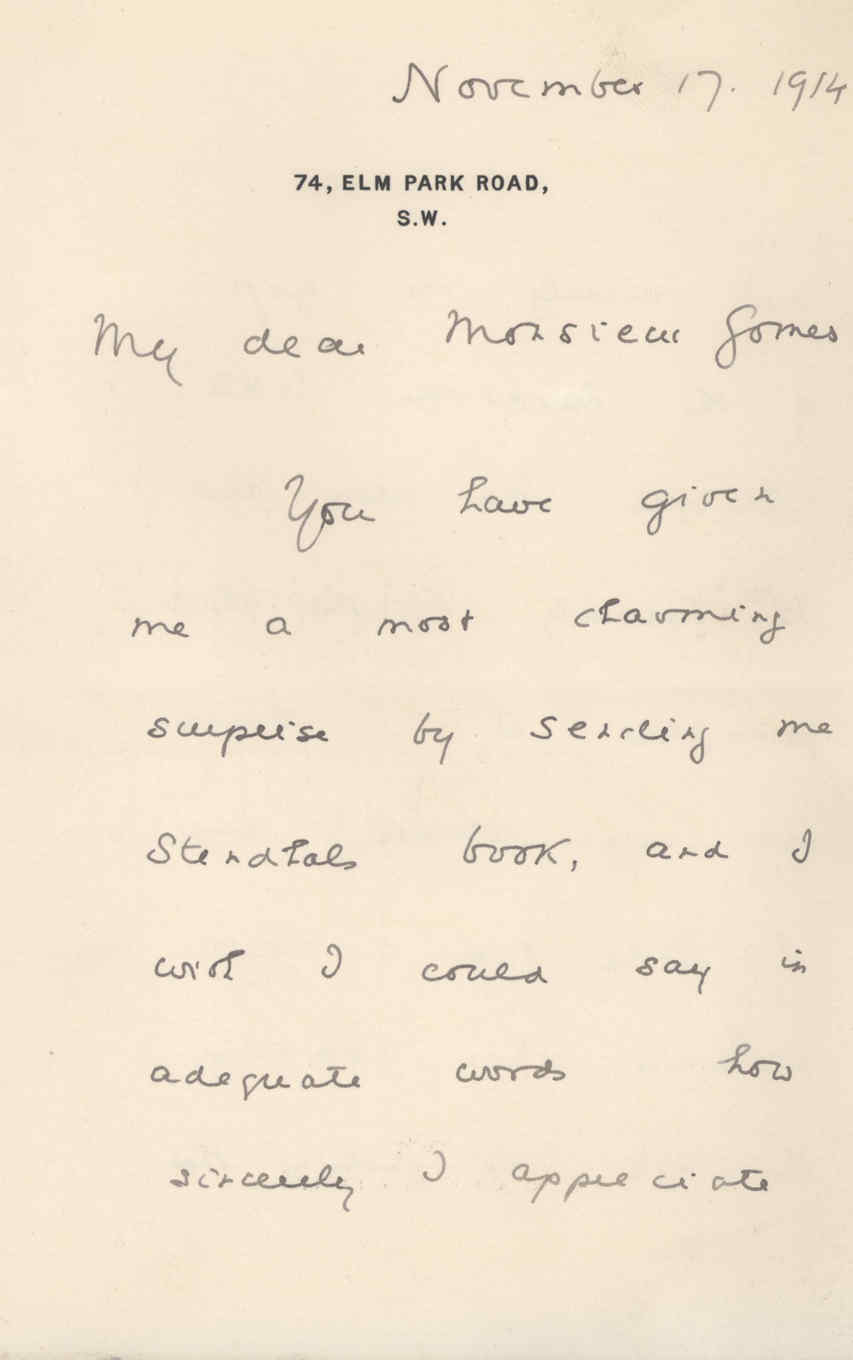 November 17. 1914
74, ELM PARK ROAD,
S.W.
My dear Monsieur Gomes
You have given
me a most charming
surprise by sending me
Stendhals book, and I
wish I could say in
adequate words how
sincerely I appreciate